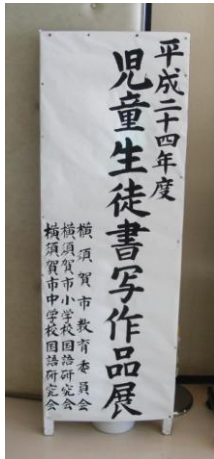 平成二十四年度
児童生徒書写作品展
横須賀市教育委員会
横須賀市小学校国語研究会
横須賀市中学校国語研究会